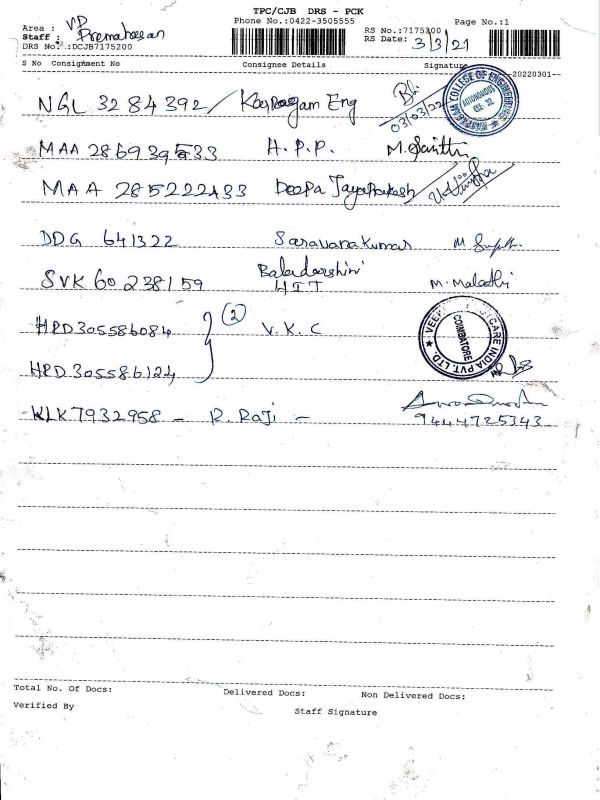 TPC/CJB DRS - PCK
Phone No.:0422-3505555
Page No.:1
Area : VP
Staff : Premahasan
DRS No.:DCJB7175200
RS No.:7175200
RS Date: 3/3/21
S No Consignment No Consignee Details Signature
--20220301--
NGL 3284392 / Karpagam Eng
03/03/22
COLLEGE OF ENGINEERING
AUTONOMOUS
CBE - 32
MAA 286939533 H.P.P. M.
MAA 285222433 Deepa Jayaprakash
DDG 641322 Saravanakumar M
SVK 60238159 Baladarshini HIT M. Malathi
HPD305586084 } (2) V.K.C
HPD305586124
CARE INDIA PVT. LTD
COIMBATORE
KLK7932958 - R. Raji -
9444725343
Total No. Of Docs: Delivered Docs: Non Delivered Docs:
Verified By Staff Signature